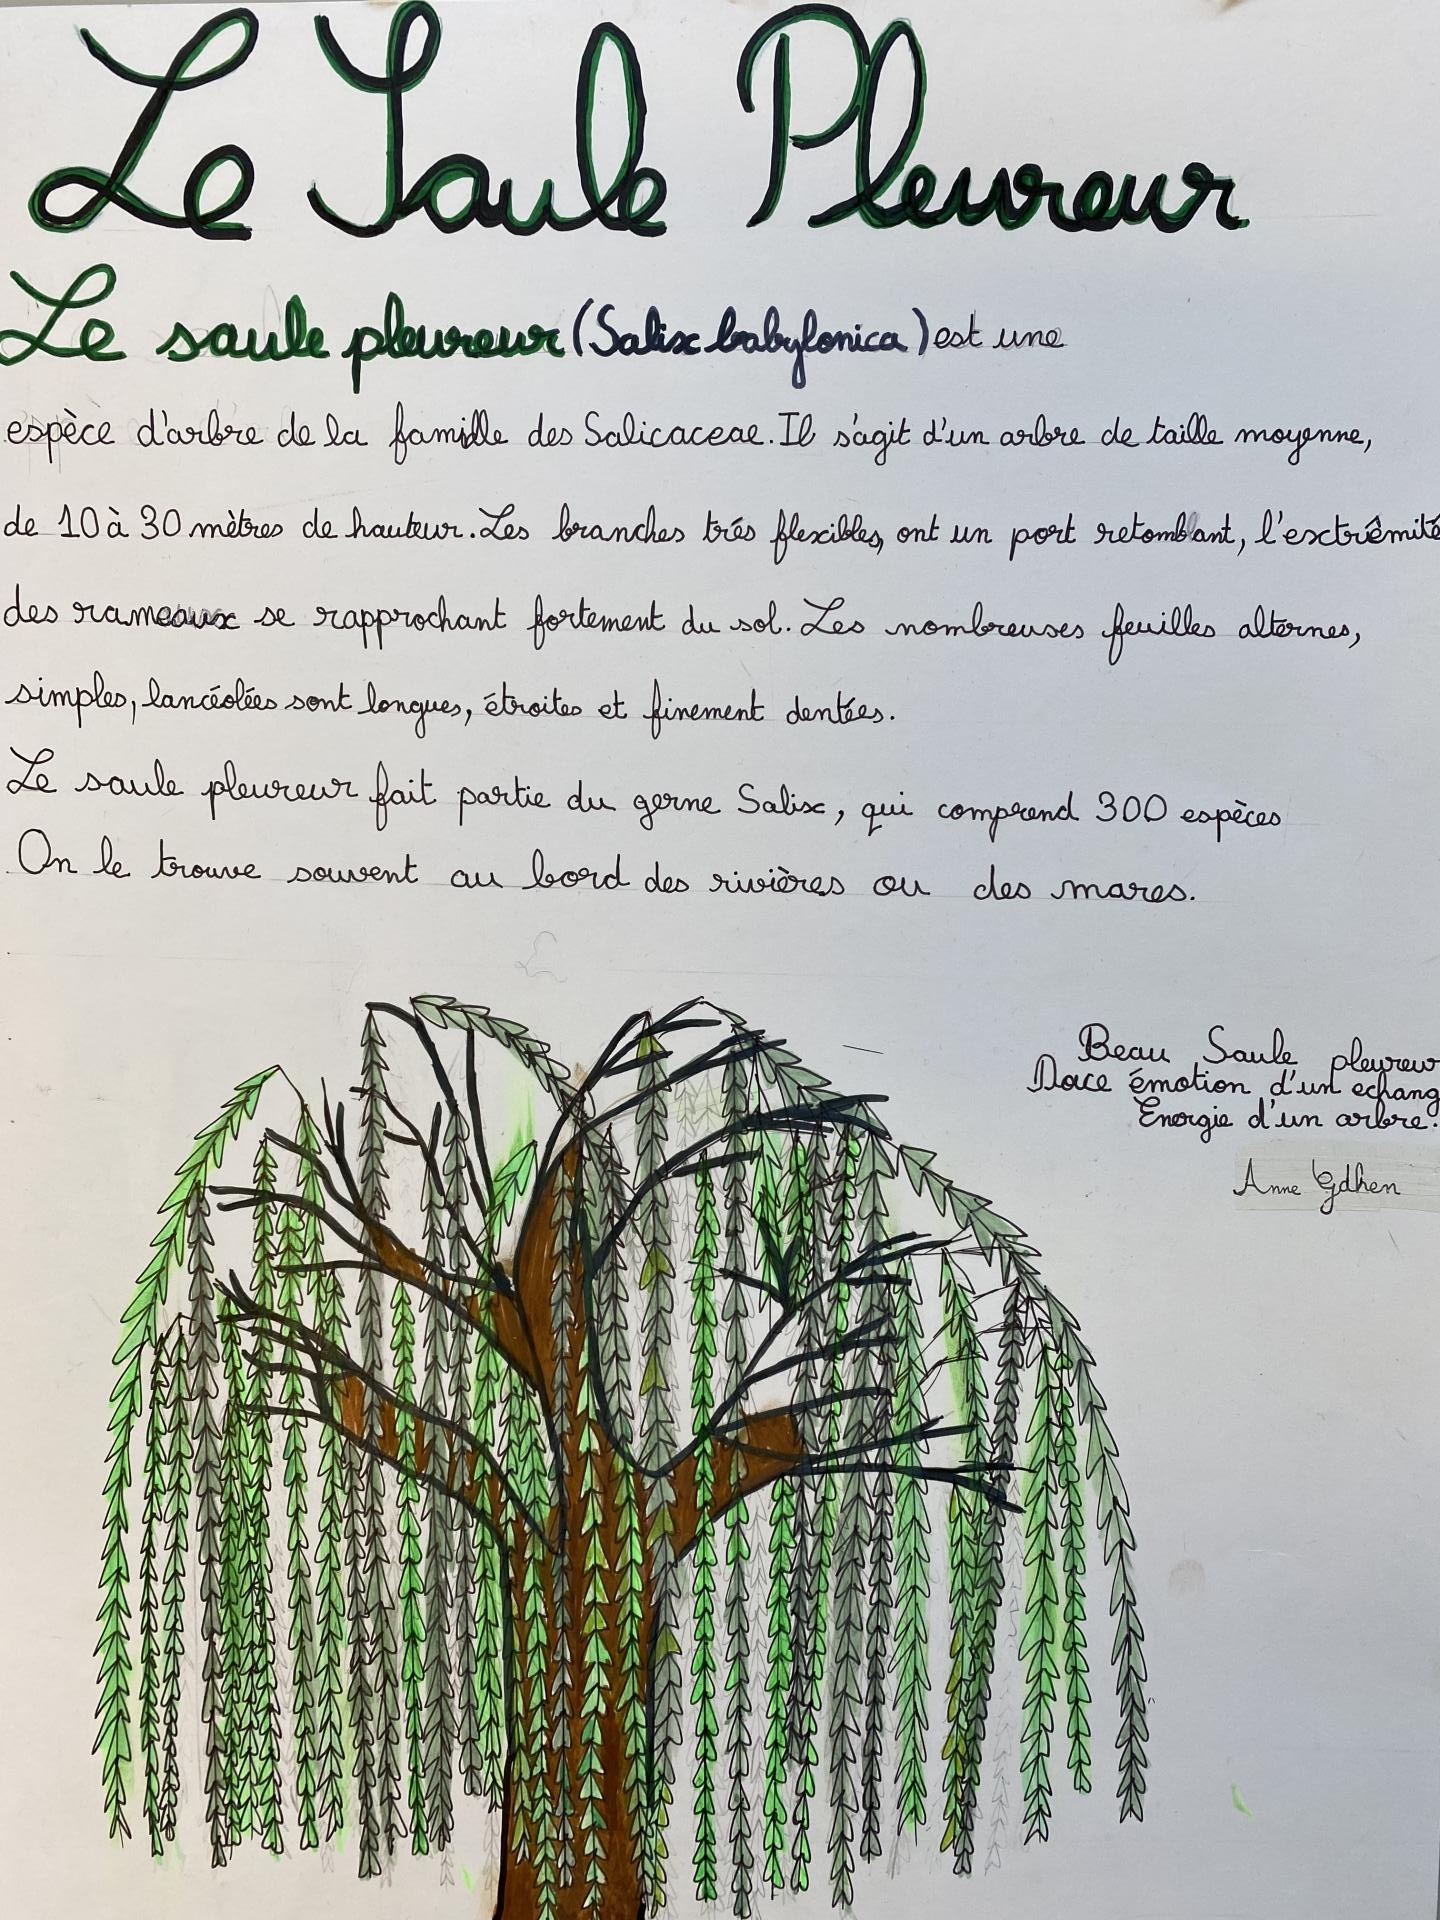 Le Saule Pleureur
Le saule pleureur (Salix babylonica) est une
espèce d'arbre de la famille des Salicaceae. Il s'agit d'un arbre de taille moyenne,
de 10 à 30 mètres de hauteur. Les branches très flexibles, ont un port retombant, l'extrêmité
des rameaux se rapprochant fortement du sol. Les nombreuses feuilles alternes,
simples, lancéolées sont longues, étroites et finement dentées.
Le saule pleureur fait partie du gerne Salix, qui comprend 300 espèces
On le trouve souvent au bord des rivières ou des mares.
Beau Saule pleureur
émotion d'un echang
Energie d'un arbre.
Anne